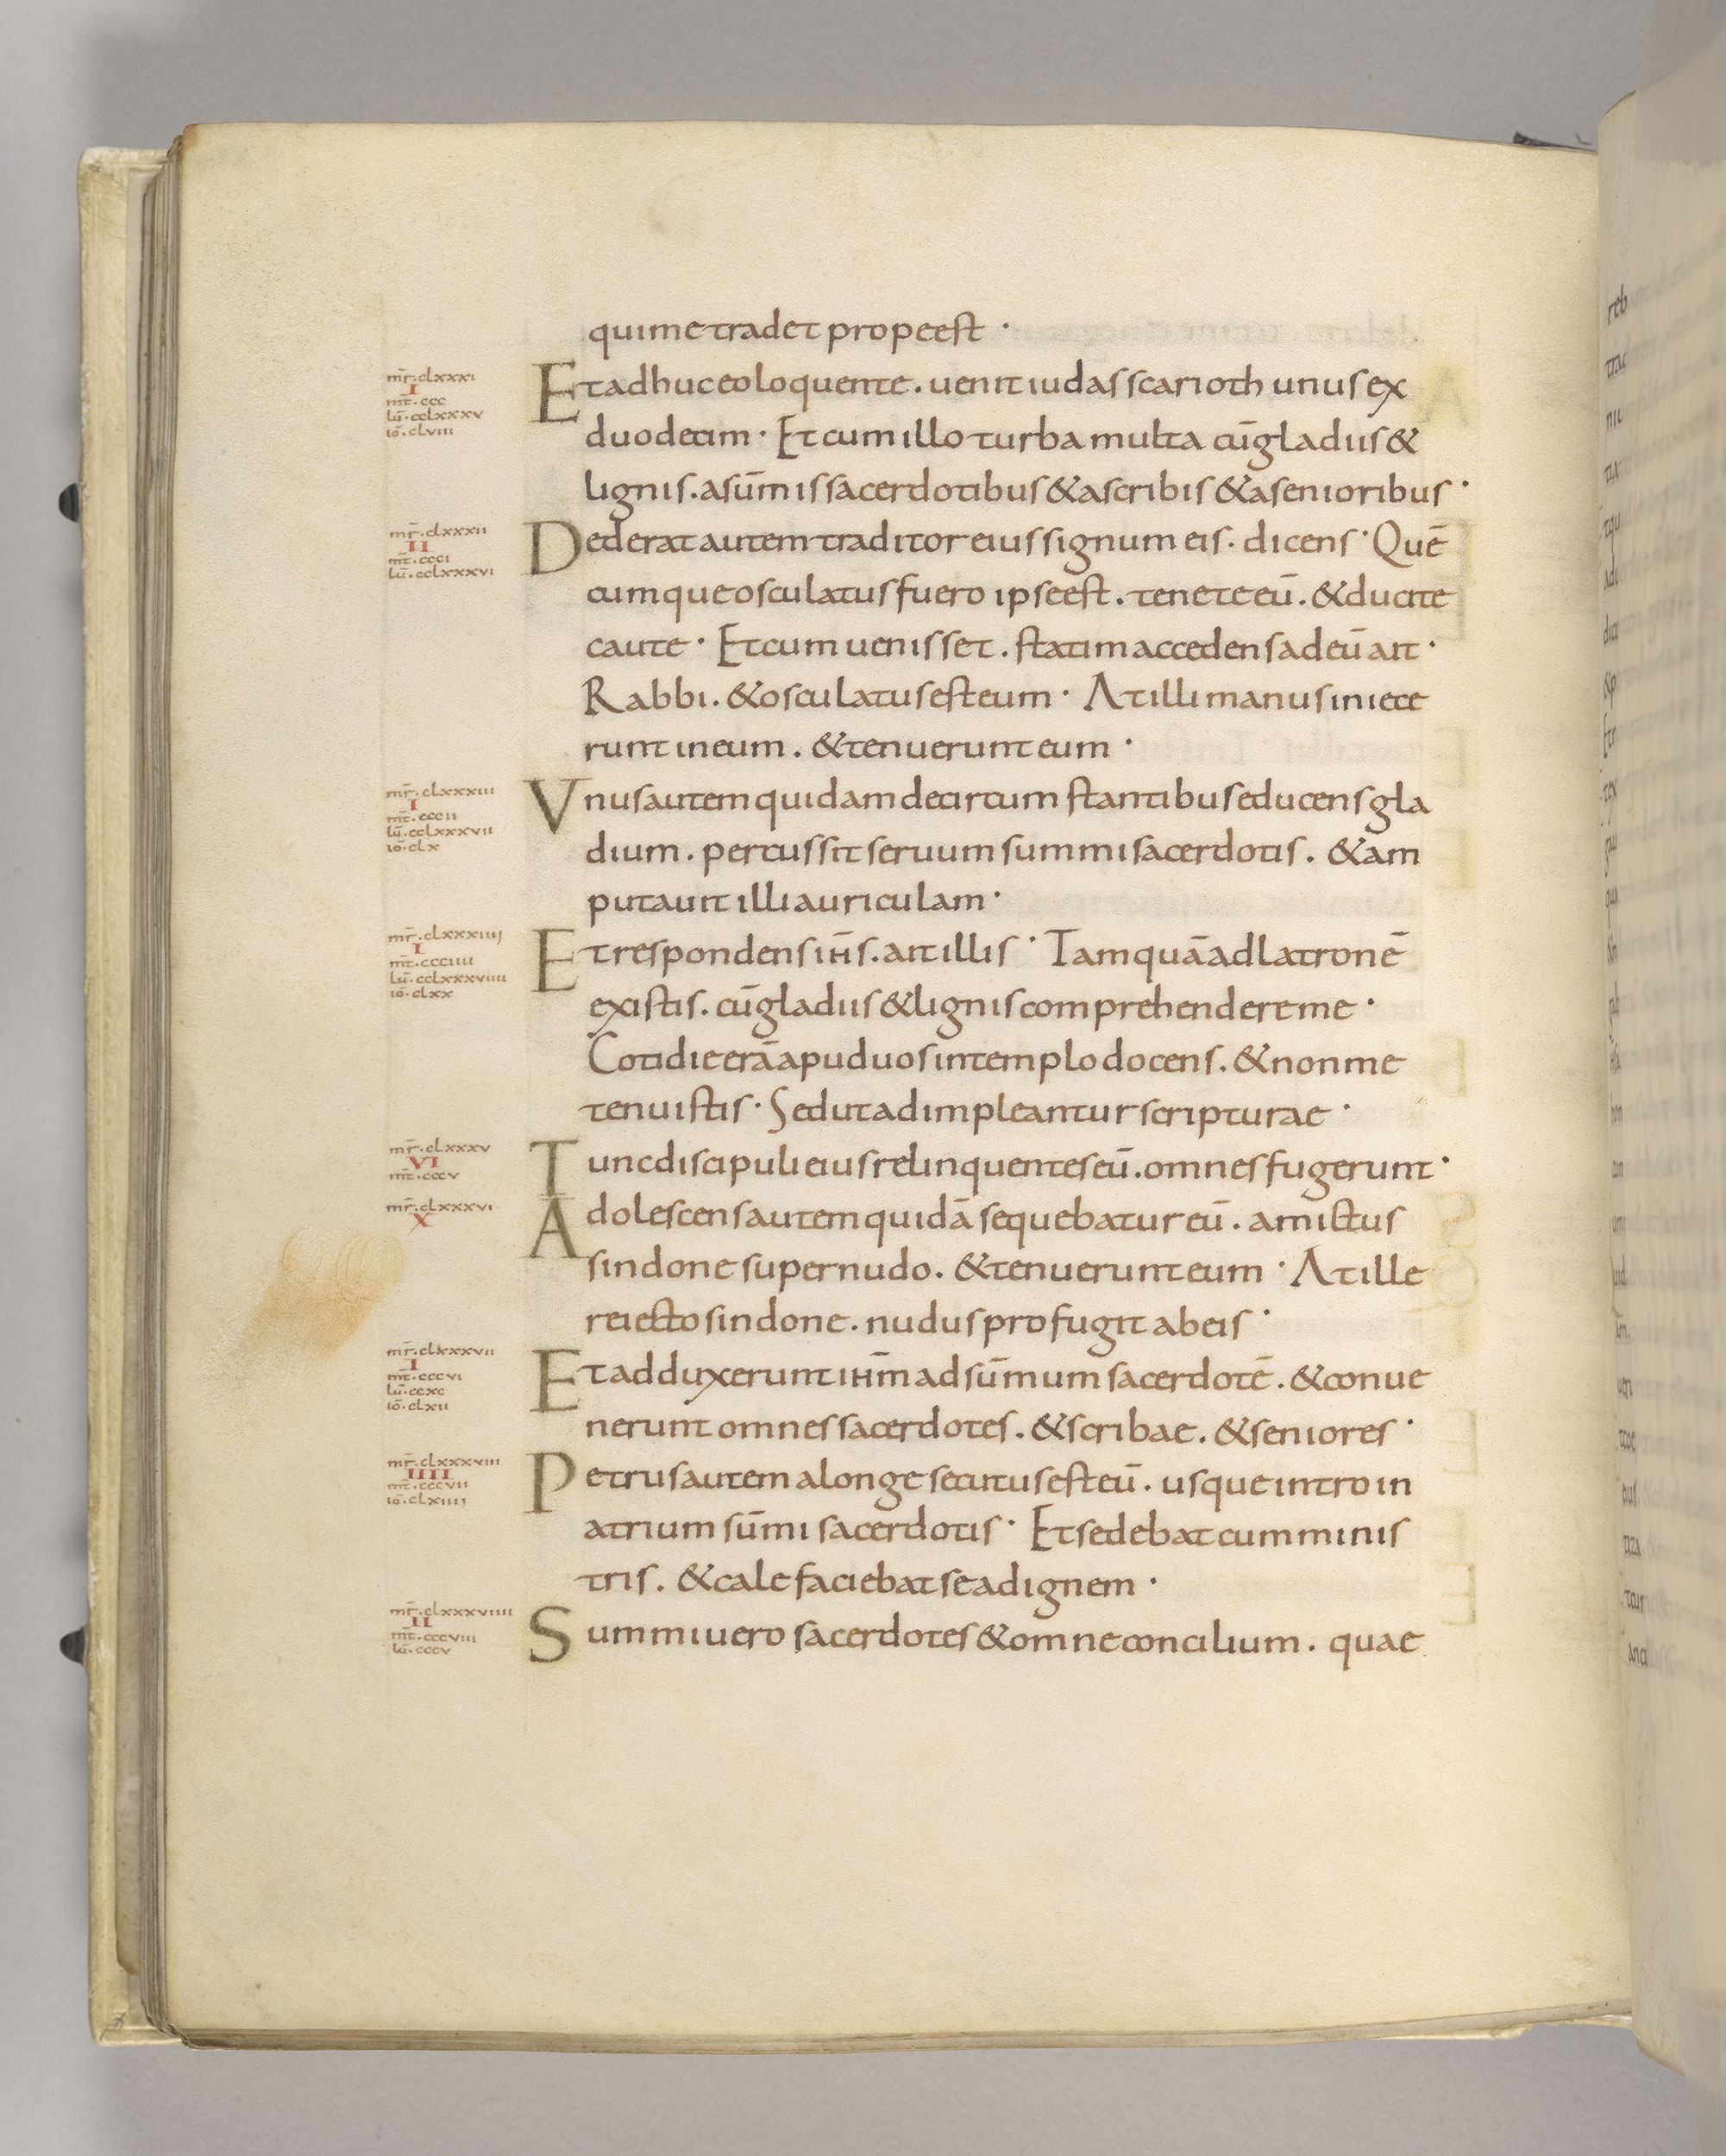 qui me tradet prope est ·
mr̄·clxxxi
I
mt̄·ccc
lū·cclxxxv
iō·clviii
Et adhuc eo loquente. uenit iudas scarioth unus ex
duodecim · Et cum illo turba multa cū gladiis &
lignis. a sūmis sacerdotibus & a scribis & a senioribus ·
mr̄·clxxxii
II
mt̄·ccci
lū·cclxxxvi
Dederat autem traditor eius signum eis. dicens · Quē
cumque osculatus fuero ipse est. tenete eū. & ducite
caute · Et cum uenisset. statim accedens ad eū ait ·
Rabbi. & osculatus est eum · At illi manus iniece
runt in eum. & tenuerunt eum ·
mr̄·clxxxiii
I
mt̄·cccii
lū·cclxxxvii
iō·clx
Vnus autem quidam de circumstantibus educens gla
dium. percussit seruum summi sacerdotis. & am
putauit illi auriculam ·
mr̄·clxxxiiii
I
mt̄·ccciiii
lū·cclxxxviiii
iō·clxx
Et respondens ih̄s. ait illis · Tamquā ad latronē
existis. cū gladiis & lignis comprehendere me ·
Cotidie erā apud uos in templo docens. & non me
tenuistis · Sed ut adimpleantur scripturae ·
mr̄·clxxxv
VI
mt̄·cccv
Tunc discipuli eius relinquentes eū. omnes fugerunt ·
mr̄·clxxxvi
X
Adolescens autem quidā sequebatur eū. amictus
sindone super nudo. & tenuerunt eum · At ille
reiecto sindone. nudus profugit ab eis ·
mr̄·clxxxvii
I
mt̄·cccvi
lū·ccxc
iō·clxii
Et adduxerunt ih̄m ad sūmum sacerdotē. & conue
nerunt omnes sacerdotes. & scribae. & seniores ·
mr̄·clxxxviii
IIII
mt̄·cccvii
iō·clxiiii
Petrus autem a longe secutus est eū. usque intro in
atrium sūmi sacerdotis · Et sedebat cum minis
tris. & calefaciebat se ad ignem ·
mr̄·clxxxviiii
II
mt̄·cccviii
lū·cccv
Summi uero sacerdotes & omne concilium. quae